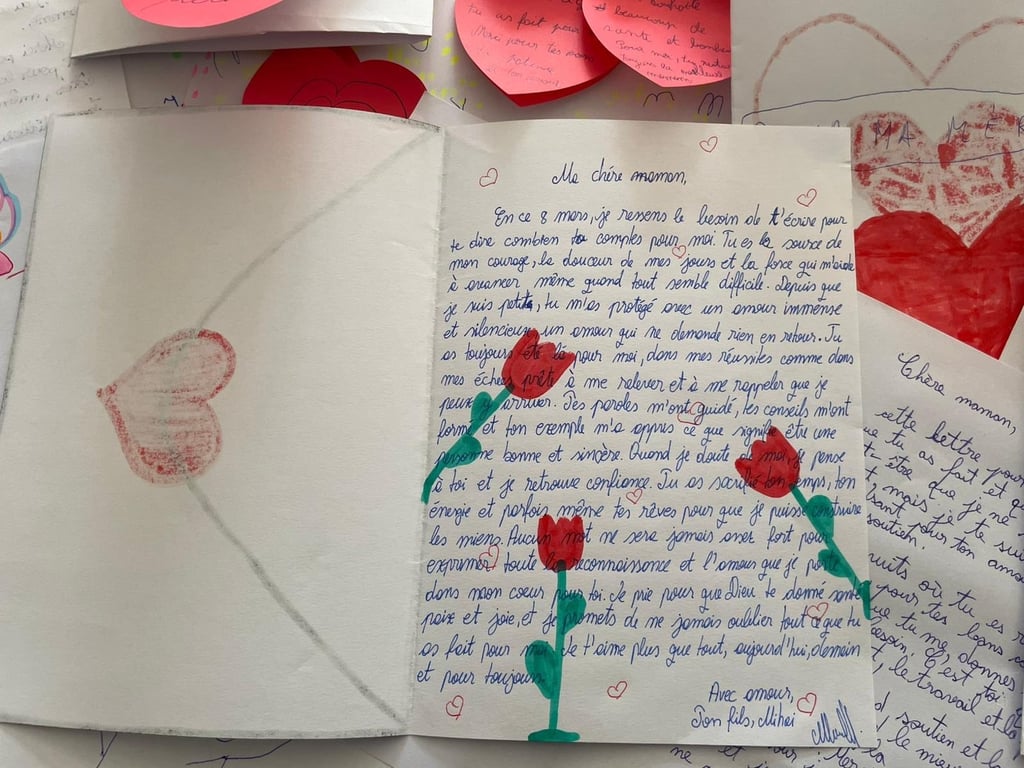 tu as fait pour
Merci pour tes bons
et beaucoup de
santé et bonheur
MA MÈR
Ma chére maman,
En ce 8 mars, je ressens le besoin de t'écrire pour
te dire combien tu comptes pour moi. Tu es la source de
mon courage, la douceur de mes jours et la force qui m'aide
à avancer même quand tout semble difficile. Depuis que
je suis petite, tu m'as protégé avec un amour immense
et silencieux, un amour qui ne demande rien en retour. Tu
as toujours été là pour moi, dans mes réussites comme dans
mes échecs prête à me relever et à me rappeler que je
peux y arriver. Tes paroles m'ont guidé, tes conseils m'ont
formé et ton exemple m'a appris ce que signifie être une
personne bonne et sincère. Quand je doute de moi, je pense
à toi et je retrouve confiance. Tu as sacrifié ton temps, ton
énergie et parfois même tes rêves pour que je puisse construire
les miens. Aucun mot ne sera jamais aser fort pour
exprimer toute la reconnaissance et l'amour que je porte
dans mon coeur pour toi. Je prie pour que Dieu te donné santé
paix et joie, et je promets de ne jamais oublier tout ce que tu
as fait pour moi. Je t'aime plus que tout, aujourd'hui, demain
et pour toujours.
Avec amour,
Ton fils, Mihai
Chère maman,
cette lettre pour
ue tu as fait et q
t être que je ne
t, mais je te sui
sant pour ton amo
soutien.
uits où tu es r
pour tes bons c
ue tu me donnes
besoin. C'est toi
t le travail et l
d soutien et la